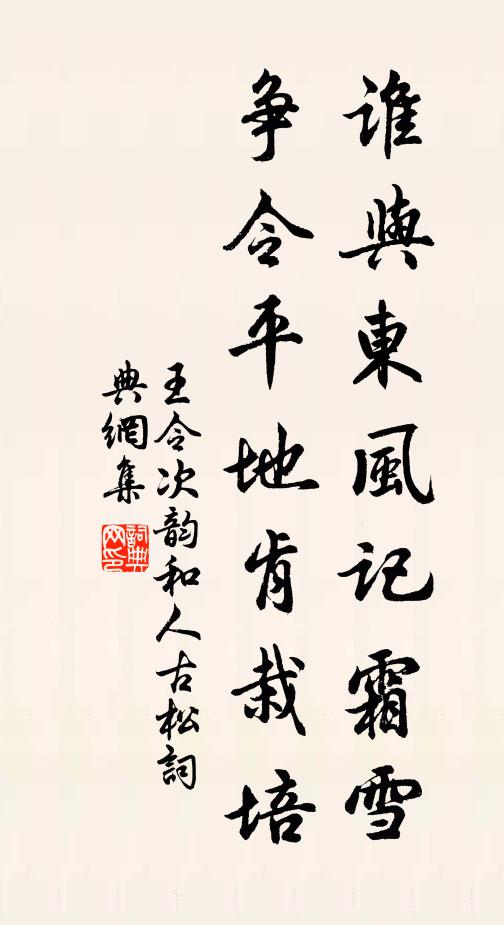 誰與東風記霜雪
爭令平地肯栽培
王令次韵和人古松詞
典網集
詞典
网印